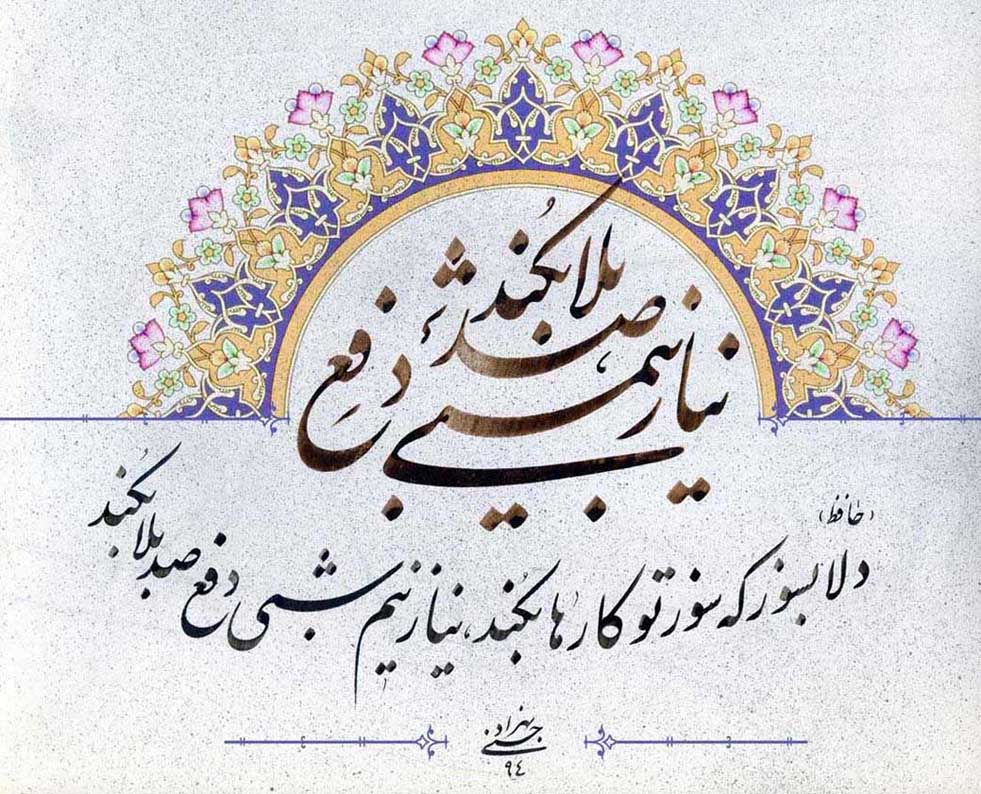 نیاز نیمشبی دفع صد بلا بکند
(حافظ)
دلا بسوز که سوز تو کارها بکند، نیاز نیم شبی دفع صد بلا بکند
بهزاد
۹٤